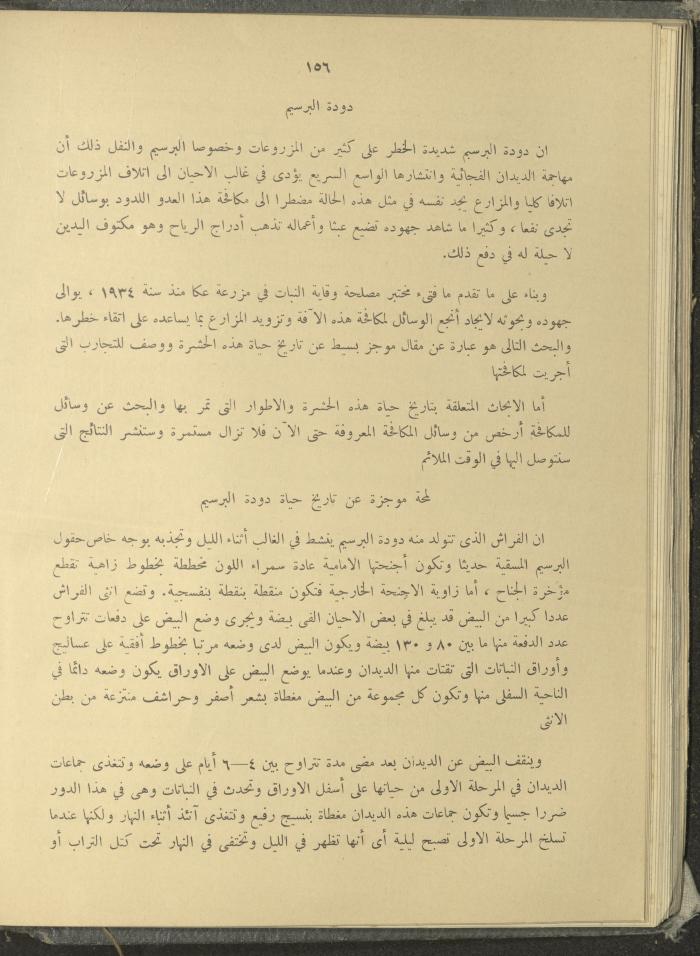 ١٥٦
دودة البرسيم
ان دودة البرسيم شديدة الخطر على كثير من المزروعات وخصوصا البرسيم والنفل ذلك أن
مهاجمة الديدان الفجائية وانفشارها الواسع السريع يؤدى في غالب الاحيان الى اتلاف المزروعات
اتلافا كليا والمزارع يجد نفسه في مثل هذه الحالة مضطرا الى مكافحة هذا العدو اللدود بوسائل لا
تجدى نفعا ، وكثيرا ما شاهد جهوده تضيع عبثا وأعماله تذهب أدراج الرياح وهو مكتوف اليدين
لا حيلة له في دفع ذلك.
وبناء على ما تقدم ما فتىء مختبر مصلحة وقاية النبات في مزرعة عكا منذ سنة ١٩٣٤ ، يوالى
جهوده وبحوثه لايجاد أنجع الوسائل لمكافحة هذه الآفة وتزويد المزارع بما يساعده على اتقاء خطرها.
والبحث التالى هو عبارة عن مقال موجز بسيط عن تاريخ حياة هذه الحشرة ووصف للتجارب التى
أجريت لمكافحتها
أما الابحاث المتعلقة بتاريخ حياة هذه الحشرة والاطوار التى تمر بها والبحث عن وسائل
للمكافحة أرخص من وسائل المكافحة المعروفة حتى الآن فلا تزال مستمرة وستنشر النتائج التى
سنتوصل اليها في الوقت الملائم
لمحة موجزة عن تاريخ حياة دودة البرسيم
ان الفراش الذى تتولد منه دودة البرسيم ينشط في الغالب أثناء الليل وتجذبه بوجه خاص حقول
البرسيم المسقية حديثا وتكون أجنحتها الامامية عادة سمراء اللون مخططة بخطوط زاهية تقطع
مؤخرة الجناح ، أما زاوية الاجنحة الخارجية فتكون منقطة بنقطة بنفسجية. وتضع انثى الفراش
عددا كبيرا من البيض قد يبلغ في بعض الاحيان الفى بيضة ويجرى وضع البيض على دفعات تتراوح
عدد الدفعة منها ما بين ٨٠ و ١٣٠ بيضة ويكون البيض لدى وضعه مرتبا بخطوط أفقية على عساليج
وأوراق النباتات التى تقتات منها الديدان وعندما يوضع البيض على الاوراق يكون وضعه دائما في
الناحية السفلى منها وتكون كل مجموعة من البيض مغطاة بشعر أصفر وحراشف منتزعة من بطن
الانثى
وينقف البيض عن الديدان بعد مضى مدة تتراوح بين ٤—٦ أيام على وضعه وتتغذى جماعات
الديدان في المرحلة الاولى من حياتها على أسفل الاوراق وتحدث في النباتات وهى في هذا الدور
ضررا جسيما وتكون جماعات هذه الديدان مغطاة بنسيج رفيع وتتغذى آنئذ أثناء النهار ولكنها عندما
تسلخ المرحلة الاولى تصبح ليلية أى أنها تظهر في الليل وتختفى في النهار تحت كتل التراب أو